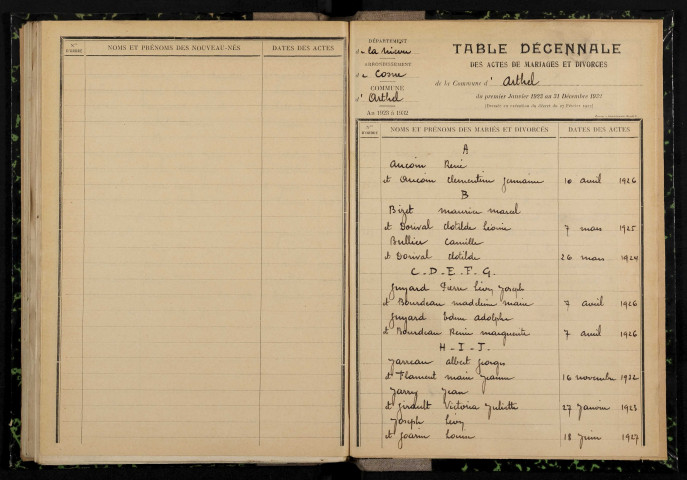 N° D'ORDRE
NOMS ET PRÉNOMS DES NOUVEAU-NÉS
DATES DES ACTES
DÉPARTEMENT
de la Nièvre
ARRONDISSEMENT
de Cosne
COMMUNE
d' Arthel
An 1923 à 1932
TABLE DÉCENNALE
DES ACTES DE MARIAGES ET DIVORCES
de la Commune d' Arthel
du premier Janvier 1923 au 31 Décembre 1932
N° D'ORDRE
NOMS ET PRÉNOMS DES MARIÉS ET DIVORCÉS
DATES DES ACTES
A
Aucoin René
et Aucoin Clémentine Germaine 10 avril 1926
B
Bizet maurice marcel
et Dorival Clotilde 7 mars 1925
Bullier Camille
et Dorival Clotilde 26 mars 1924
C - D - E - F - G.
Guyard Pierre Léon Joseph
et Bourdeau madeleine marie 7 avril 1926
Guyard Edme adolphe
et Bourdeau Renée marguerite 7 avril 1926
H - I - J.
Jarreau albert Georges
et Flament marie Jeanne 16 novembre 1932
Jarry Jean
et Girault Victoria Juliette 27 Janvier 1923
Joseph Léon
et 18 Juin 1927